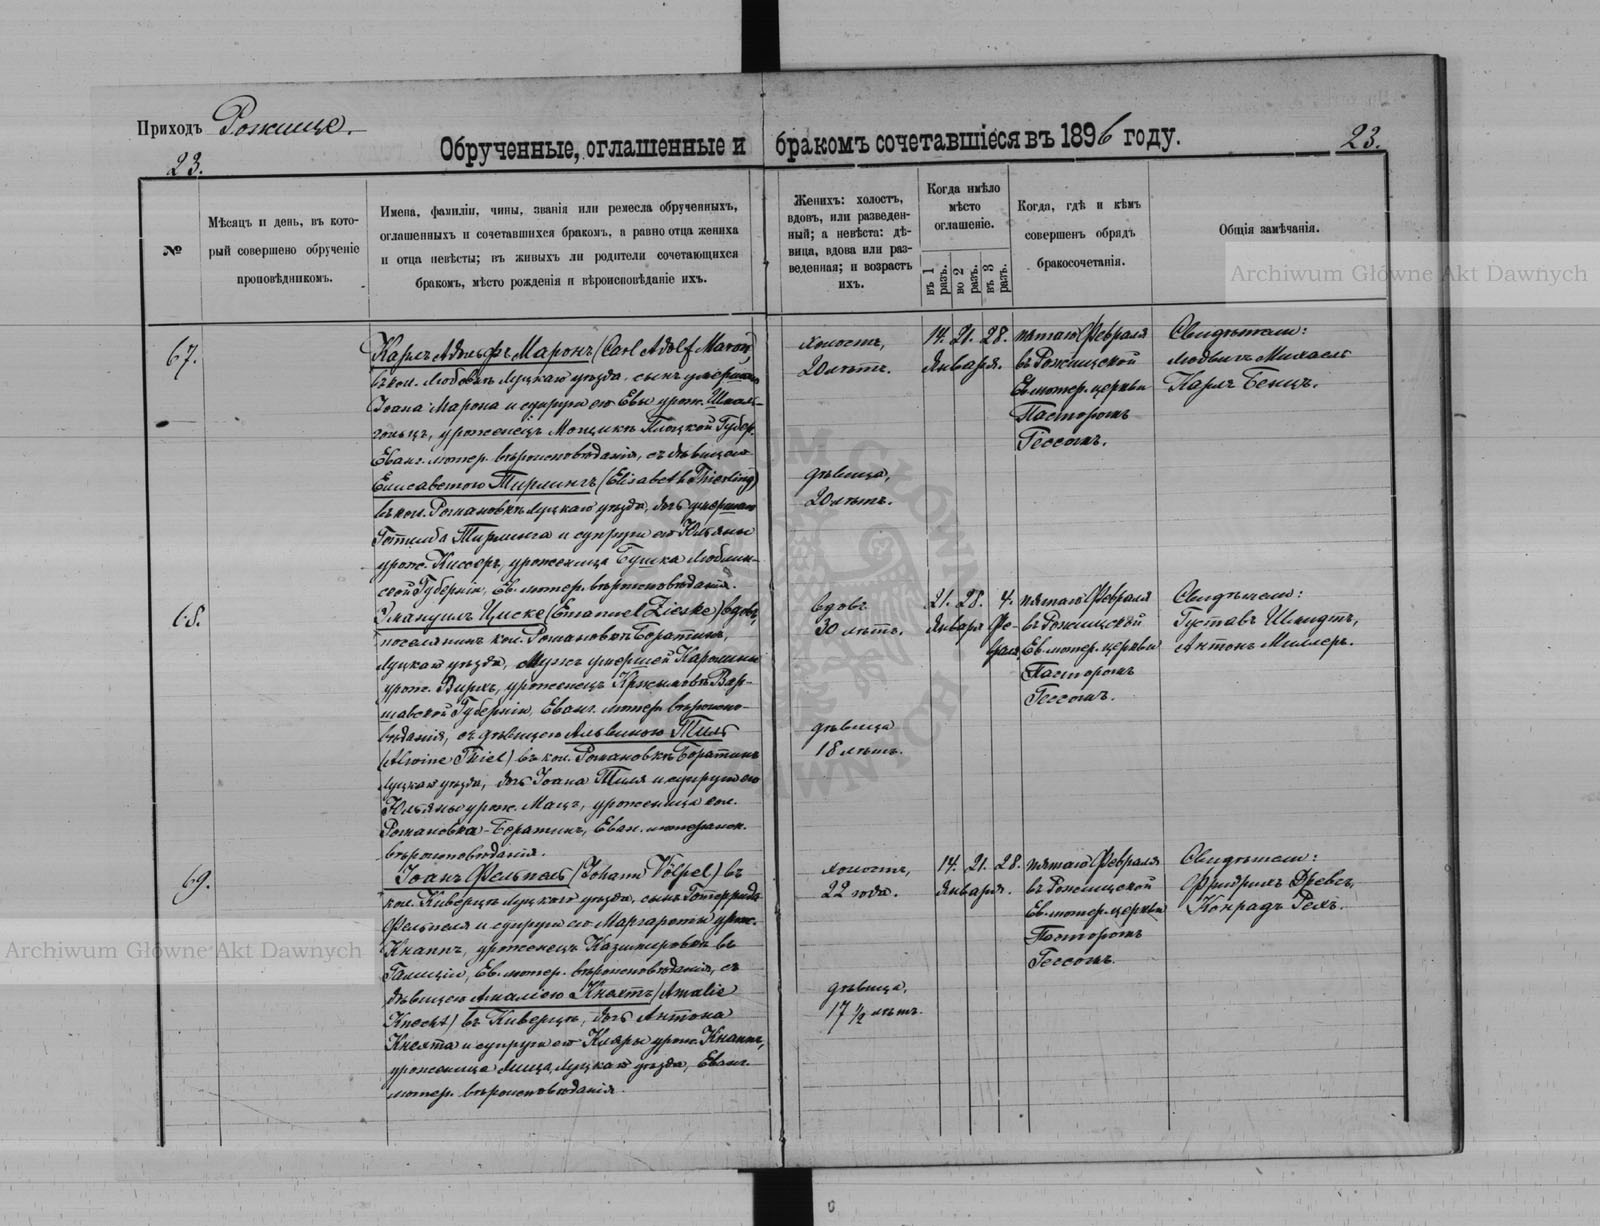 Приходъ Рожище.
23.
Обрученные, оглашенные и бракомъ сочетавшіеся въ 1896 году.
23.
№
Мѣсяцъ и день, въ кото-
рый совершено обрученіе
проповѣдникомъ.
Имена, фамиліи, чины, званія или ремесла обрученныхъ,
оглашенныхъ и сочетавшихся бракомъ, а равно отца жениха
и отца невѣсты; въ живыхъ ли родители сочетающихся
бракомъ, мѣсто рожденія и вѣроисповѣданіе ихъ.
Женихъ: холостъ,
вдовъ, или разведен-
ный; а невѣста: дѣ-
вица, вдова или раз-
веденная; и возрастъ
ихъ.
Когда имѣло
мѣсто
оглашеніе.
въ 1 разъ.
во 2 разъ.
въ 3 разъ.
Когда, гдѣ и кѣмъ
совершенъ обрядъ
бракосочетанія.
Общія замѣчанія.
67.
Карлъ Адольфъ Маронъ (Carl Adolf Maron)
въ кол. Любовкѣ Луцкаго уѣзда, сынъ умершаго
Іоана Марона и супруги его Евы урож.
уроженецъ Плоцкой Губер.
Еванг. лютер. вѣроисповѣданія, съ дѣвицею
Елисаветою Тирлингъ (Elisabeth Thierling)
въ кол. Романовкѣ Луцкаго уѣзда, дочь умершаго
Готлиба Тирлинга и супруги его Юльяны
урож. Киссеръ, уроженица Люблин-
ской Губерніи, Ев. лютер. вѣроисповѣданія.
холостъ,
20 лѣтъ.
дѣвица,
20 лѣтъ.
14. 21. 28.
Января.
пятаго Февраля
въ Рожищской
Ев. лютер. церкви
Пасторомъ
Гессомъ.
Свидѣтели:
Людвигъ Михаель
Карлъ Бенцъ.
68.
Эмануилъ Циске (Emanuel Zieske) вдовъ,
поселянинъ кол. Романовкѣ Боратинъ,
Луцкаго уѣзда, мужъ умершей Каролины
урож. Вирхъ, уроженецъ Вар-
шавской Губерніи, Еванг. лютер. вѣроиспо-
вѣданія, съ дѣвицею Альвиною Тиль
(Alwine Thiel) въ кол. Романовкѣ Боратинъ
Луцкаго уѣзда, дочь Іоана Тиля и супруги его
Юльяны урож. Мацъ, уроженица кол.
Романовка-Боратинъ, Еван. лютеранск.
вѣроисповѣданія.
вдовъ
30 лѣтъ.
дѣвица
18 лѣтъ.
21. 28. 4.
Января Фе-
враля
пятаго Февраля
въ Рожищской
Ев. лютер. церкви
Пасторомъ
Гессомъ.
Свидѣтели:
Густавъ Шмидтъ,
Антонъ Миллеръ.
69.
Іоанъ Фельпель (Johann Völpel) въ
кол. Киверцѣ Луцкаго уѣзда, сынъ Готфрида
Фельпеля и супруги его Маргареты урож.
Кнаппъ, уроженецъ Казимировки въ
Галиціи, Ев. лютер. вѣроисповѣданія, съ
дѣвицею Амаліею Кнехтъ (Amalie
Knecht) въ Киверцѣ, дочь Антона
Кнехта и супруги его Клары урож. Кнаппъ,
уроженица Луцкаго уѣзда, Еванг.
лютер. вѣроисповѣданія.
холостъ,
22 года.
дѣвица,
17 ½ лѣтъ.
14. 21. 28.
Января.
пятаго Февраля
въ Рожищской
Ев. лютер. церкви
Пасторомъ
Гессомъ.
Свидѣтели:
Фридрихъ Древсъ,
Конрадъ Рехъ.
Archiwum Główne Akt Dawnych
Archiwum Główne Akt Dawnych